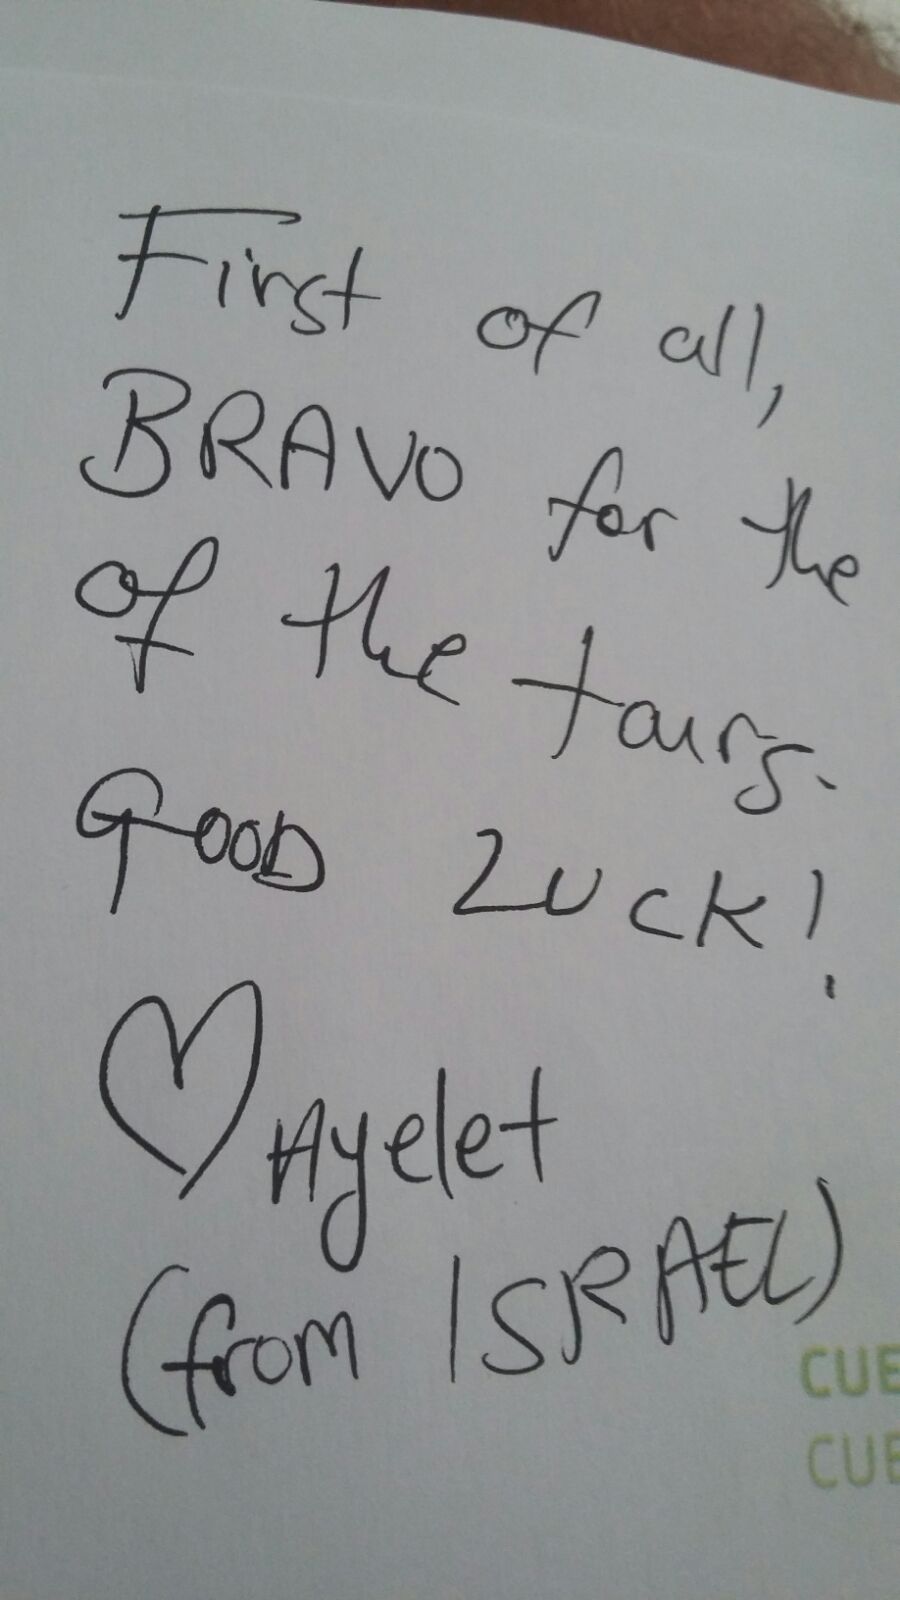 First of all,
BRAVO for the
of the tours.
GOOD LUCK!
Ayelet
(from ISRAEL)
CUE
CUE